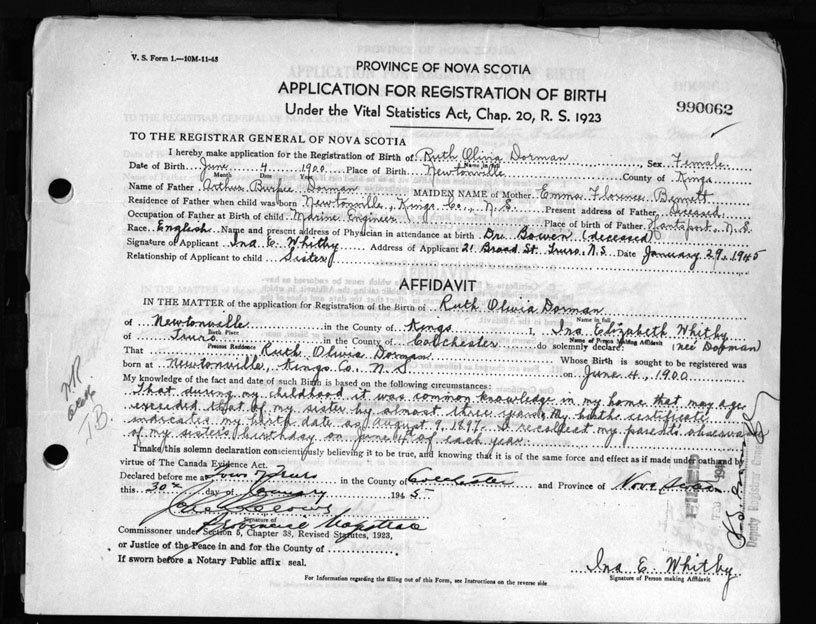 V. S. Form 1.—10M-11-43
PROVINCE OF NOVA SCOTIA
APPLICATION FOR REGISTRATION OF BIRTH
Under the Vital Statistics Act, Chap. 20, R. S. 1923
990062
TO THE REGISTRAR GENERAL OF NOVA SCOTIA
I hereby make application for the Registration of Birth of: Ruth Olivia Dorman Sex Female
Name in Full
Date of Birth June 4 1900 Place of Birth Newtonville County of Kings
Month Date Year
Name of Father Arthur Burpee Dorman MAIDEN NAME of Mother Emma Florence Bennett
Residence of Father when child was born Newtonville, Kings Co., N.S. Present address of Father, deceased
Occupation of Father at Birth of child Marine Engineer Place of birth of Father Hantsport, N.S.
Race English Name and present address of Physician in attendance at birth Dr. Bowen (deceased)
Signature of Applicant Ina E. Whitby Address of Applicant 21 Broad St. Truro, N.S. Date January 29, 1945
Relationship of Applicant to child Sister
AFFIDAVIT
IN THE MATTER of the application for Registration of the Birth of Ruth Olivia Dorman
Name in full
of Newtonville in the County of Kings Ina Elizabeth Whitby
Birth Place Name of Person Making Affidavit
of Truro in the County of Colchester do solemnly declare: (neé Dorman)
Present Residence
That Ruth Olivia Dorman Whose Birth is sought to be registered was
born at Newtonville, Kings Co., N.S. on June 4, 1900
My knowledge of the fact and date of such Birth is based on the following circumstances:
That during my childhood it was common knowledge in my home that my age
exceeded that of my sister by almost three years. My birth certificate
indicates my birth date as August 9, 1897. I recollect my parents observance
of my sister's birthday on June 4 of each year.
I make this solemn declaration conscientiously believing it to be true, and knowing that it is of the same force and effect as if made under oath and by
virtue of The Canada Evidence Act.
Declared before me at Truro in the County of Colchester and Province of Nova Scotia
this 30th day of January 1945
Signature of
Provincial Magistrate
Commissioner under Section 5, Chapter 38, Revised Statutes, 1923,
or Justice of the Peace in and for the County of
If sworn before a Notary Public affix seal.
Ina E. Whitby
Signature of Person making Affidavit
For Information regarding the filling out of this Form, see Instructions on the reverse side
FILED
Deputy Registrar General